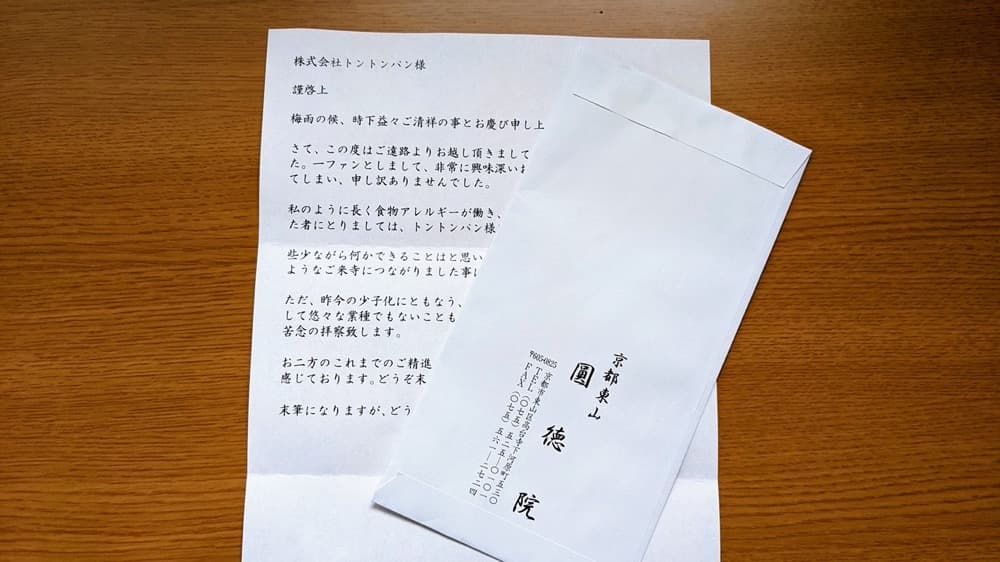 株式会社トントンパン様
謹啓上
梅雨の候、時下益々ご清祥の事とお慶び申し上
さて、この度はご遠路よりお越し頂きまして
た。一ファンとしまして、非常に興味深いお
てしまい、申し訳ありませんでした。
私のように長く食物アレルギーが働き、
た者にとりましては、トントンパン様
些少ながら何かできることはと思い
ようなご来寺につながりました事に
ただ、昨今の少子化にともなう、
して悠々な業種でもないことも
苦念の拝察致します。
お二方のこれまでのご精進
感じております。どうぞ末
末筆になりますが、どう
京都東山
圓徳院
〒605-0825
京都市東山区高台寺下河原町五三〇
TEL(〇七五)五二五―〇一〇一
FAX(〇七五)五六一―二七二四